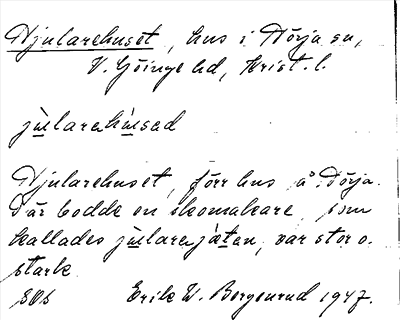 Hjularehuset, hus i Nörja sn,
V. Göinge hd, Krist. l.
jùlarehùsad
Hjularehuset, förr hus å Nörja.
Där bodde en skomakare, som
kallades jùlarejǽten, var stor o.
stark
Erik W. Bergenrud 1947.